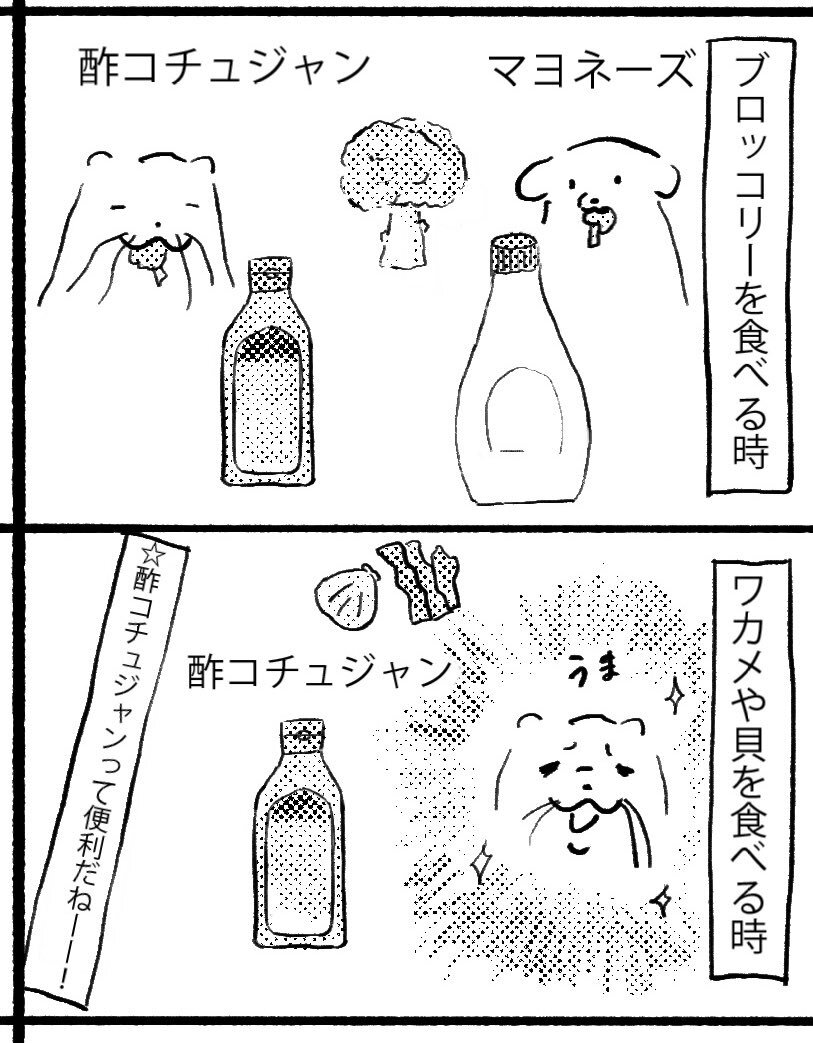 ブロッコリーを食べる時
マヨネーズ
酢コチュジャン
ワカメや貝を食べる時
うま
酢コチュジャン
☆酢コチュジャンって便利だねーー!